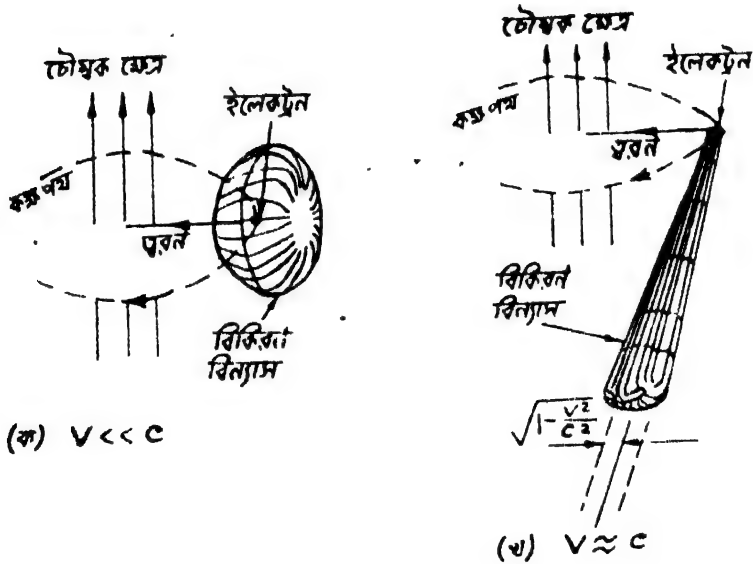 চৌম্বক ক্ষেত্র
ইলেকট্রন
কক্ষ পথ
ত্বরন
বিকিরণ
বিন্যাস
(ক) V << C
চৌম্বক ক্ষেত্র
ইলেকট্রন
কক্ষ পথ
ত্বরন
বিকিরন
বিন্যাস
√1-V²/C²
(খ) V ≈ C